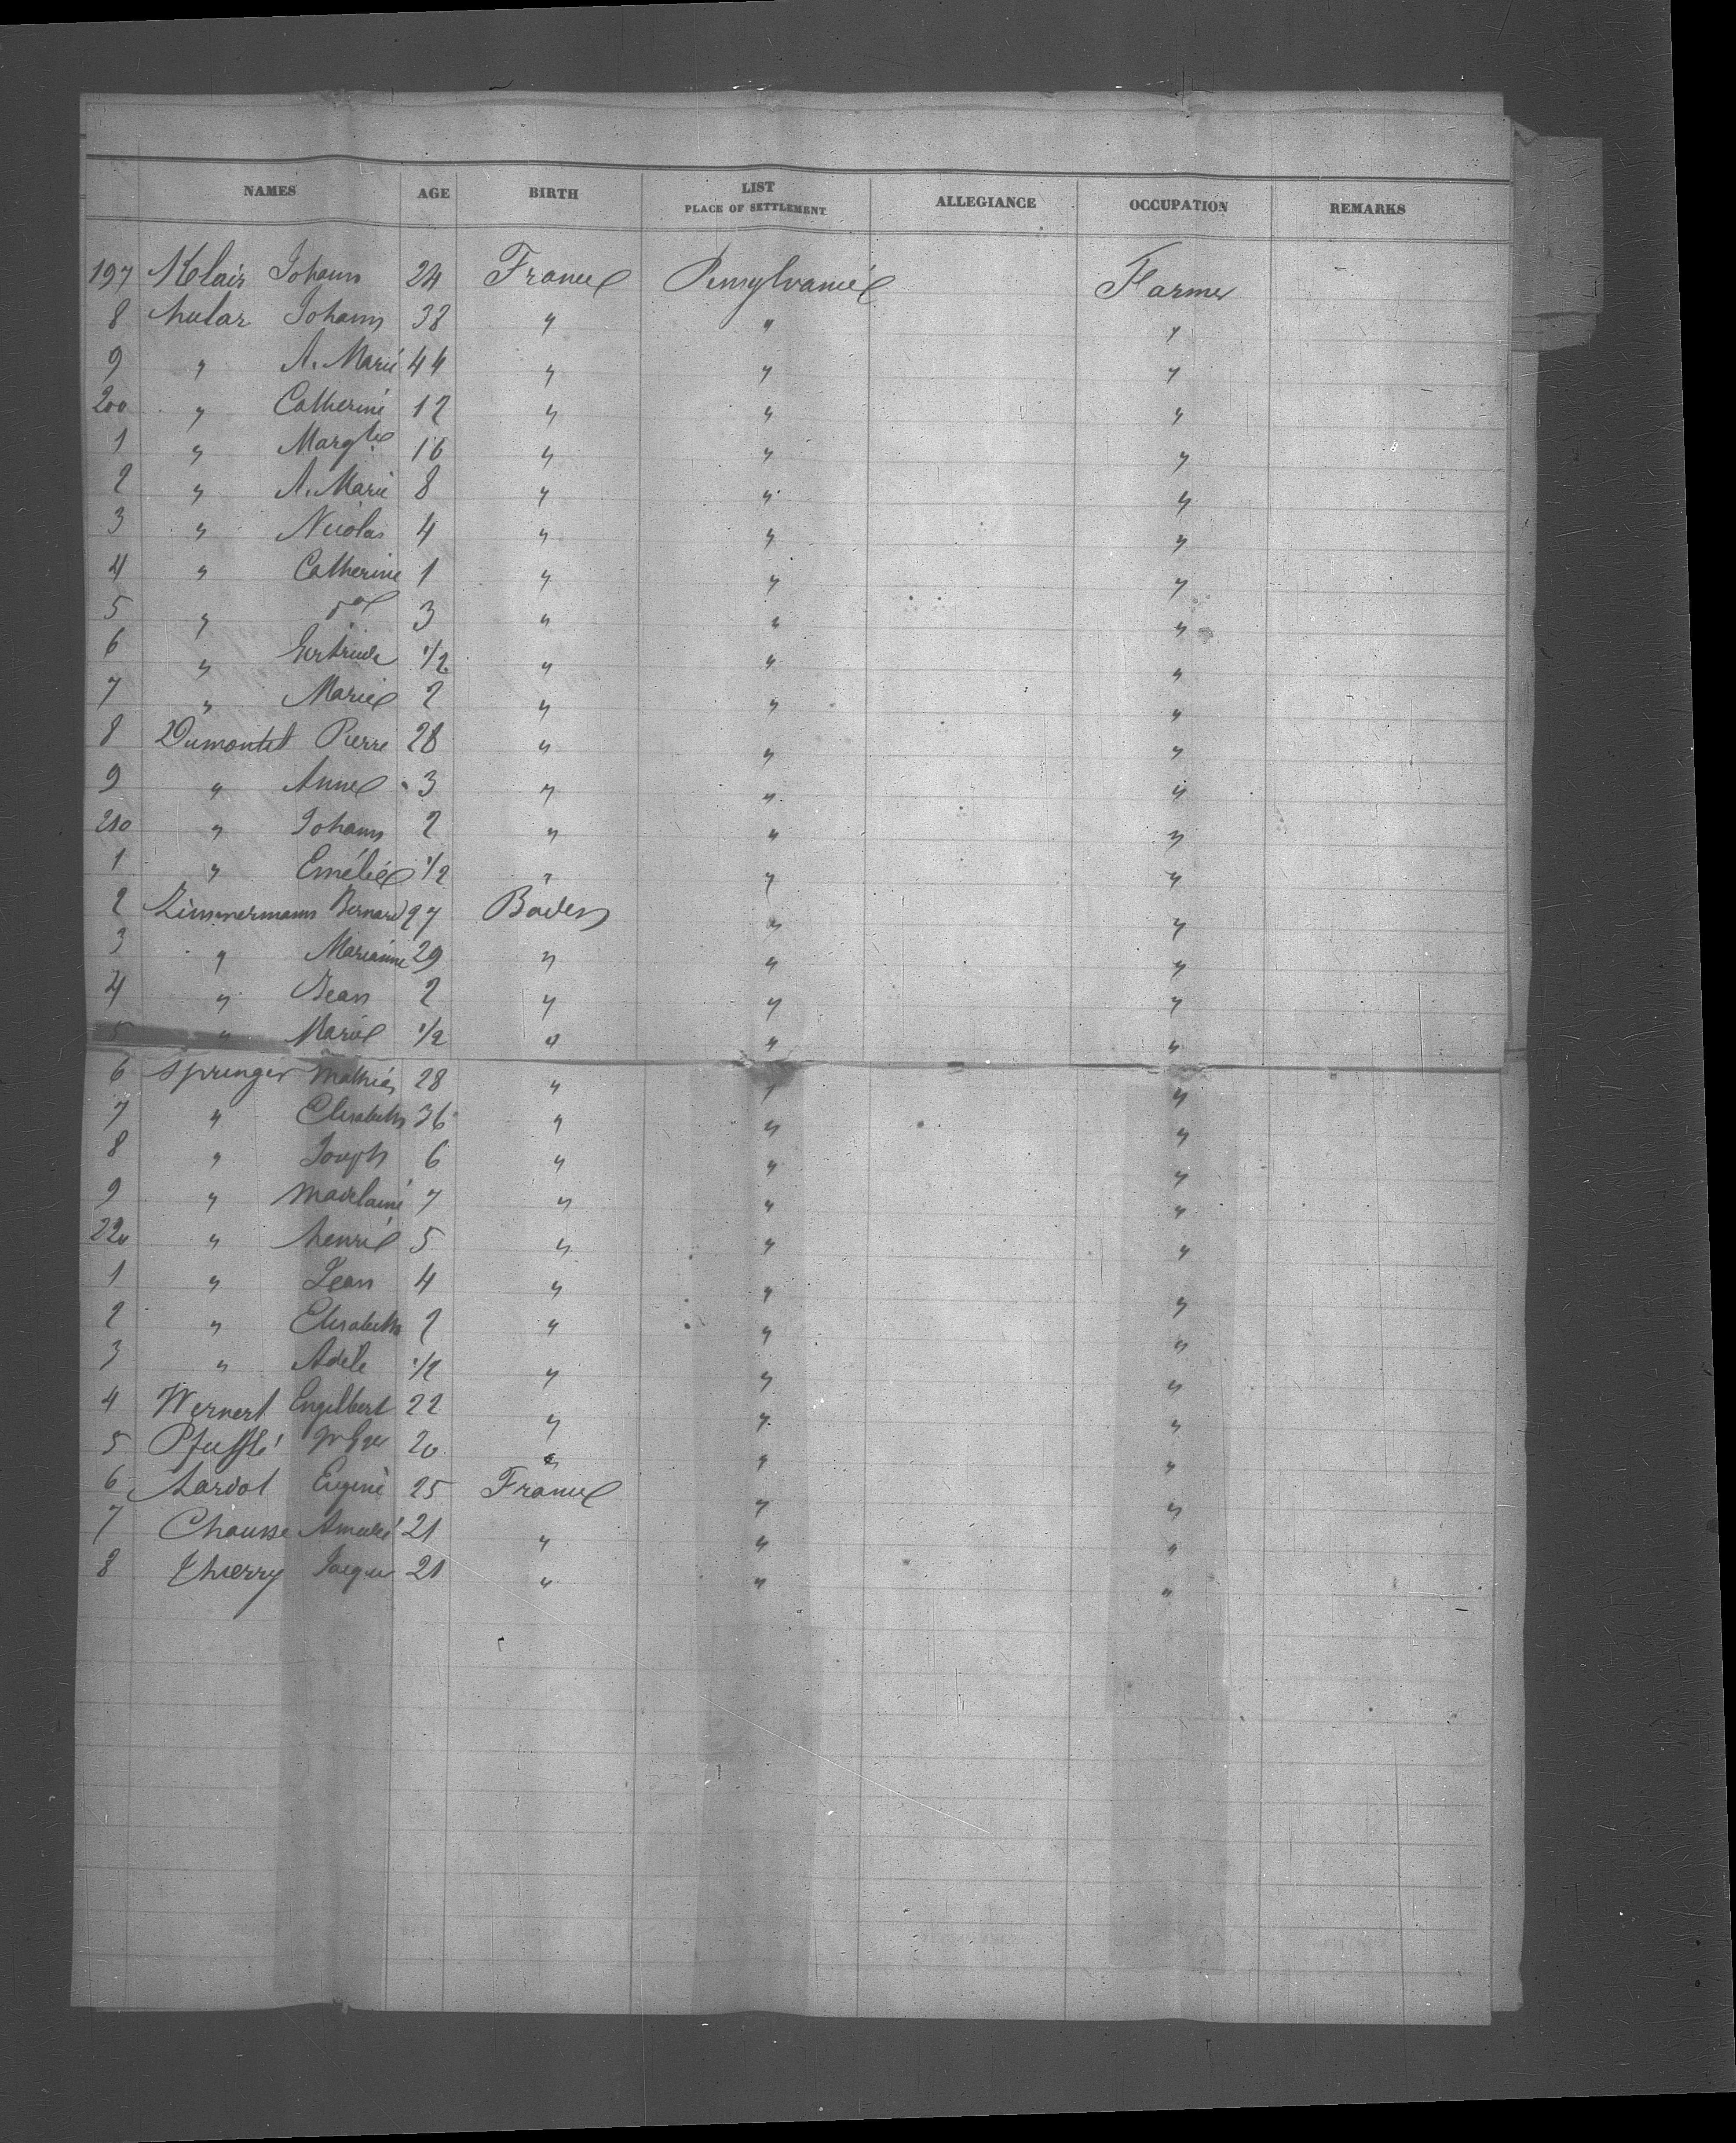 NAMES AGE BIRTH LIST PLACE OF SETTLEMENT ALLEGIANCE OCCUPATION REMARKS
197 Johann 24 France Pensylvanie Farmer
8 Hular Johann 38 " " "
9 " A. Marie 44 " " "
200 " Catherine 12 " " "
1 " Margte 16 " " "
2 " A. Marie 8 " " "
3 " Nicolas 4 " " "
4 " Catherine 1 " " "
5 " do 3 " " "
6 " Gertrude 1/2 " " "
7 " Marie 2 " " "
8 Dumontet Pierre 28 " " "
9 " Anne 3 " " "
210 " Johann 2 " " "
1 " Emélie 1/2 " " "
2 Zimmermann Bernard 27 Baden " "
3 " Marianne 29 " " "
4 " Jean 2 " " "
5 " Marie 1/2 " " "
6 Springer Mathias 28 " " "
7 " Elisabeth 36 " " "
8 " Joseph 6 " " "
9 " Madelaine 7 " " "
220 " Henrie 5 " " "
1 " Jean 4 " " "
2 " Elisabeth 2 " " "
3 " Adèle 1/2 " " "
4 Wernert Engelbert 22 " " "
5 20 " " "
6 Hardot Eugène 25 France " "
7 Chausse 21 " " "
8 Thierry Jacques 21 " " "